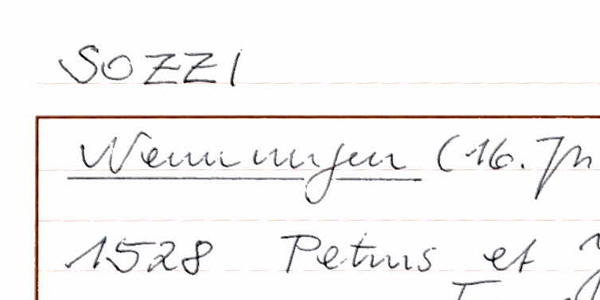 SOZZI
Nennungen (16. Jh
1528 Petrus et